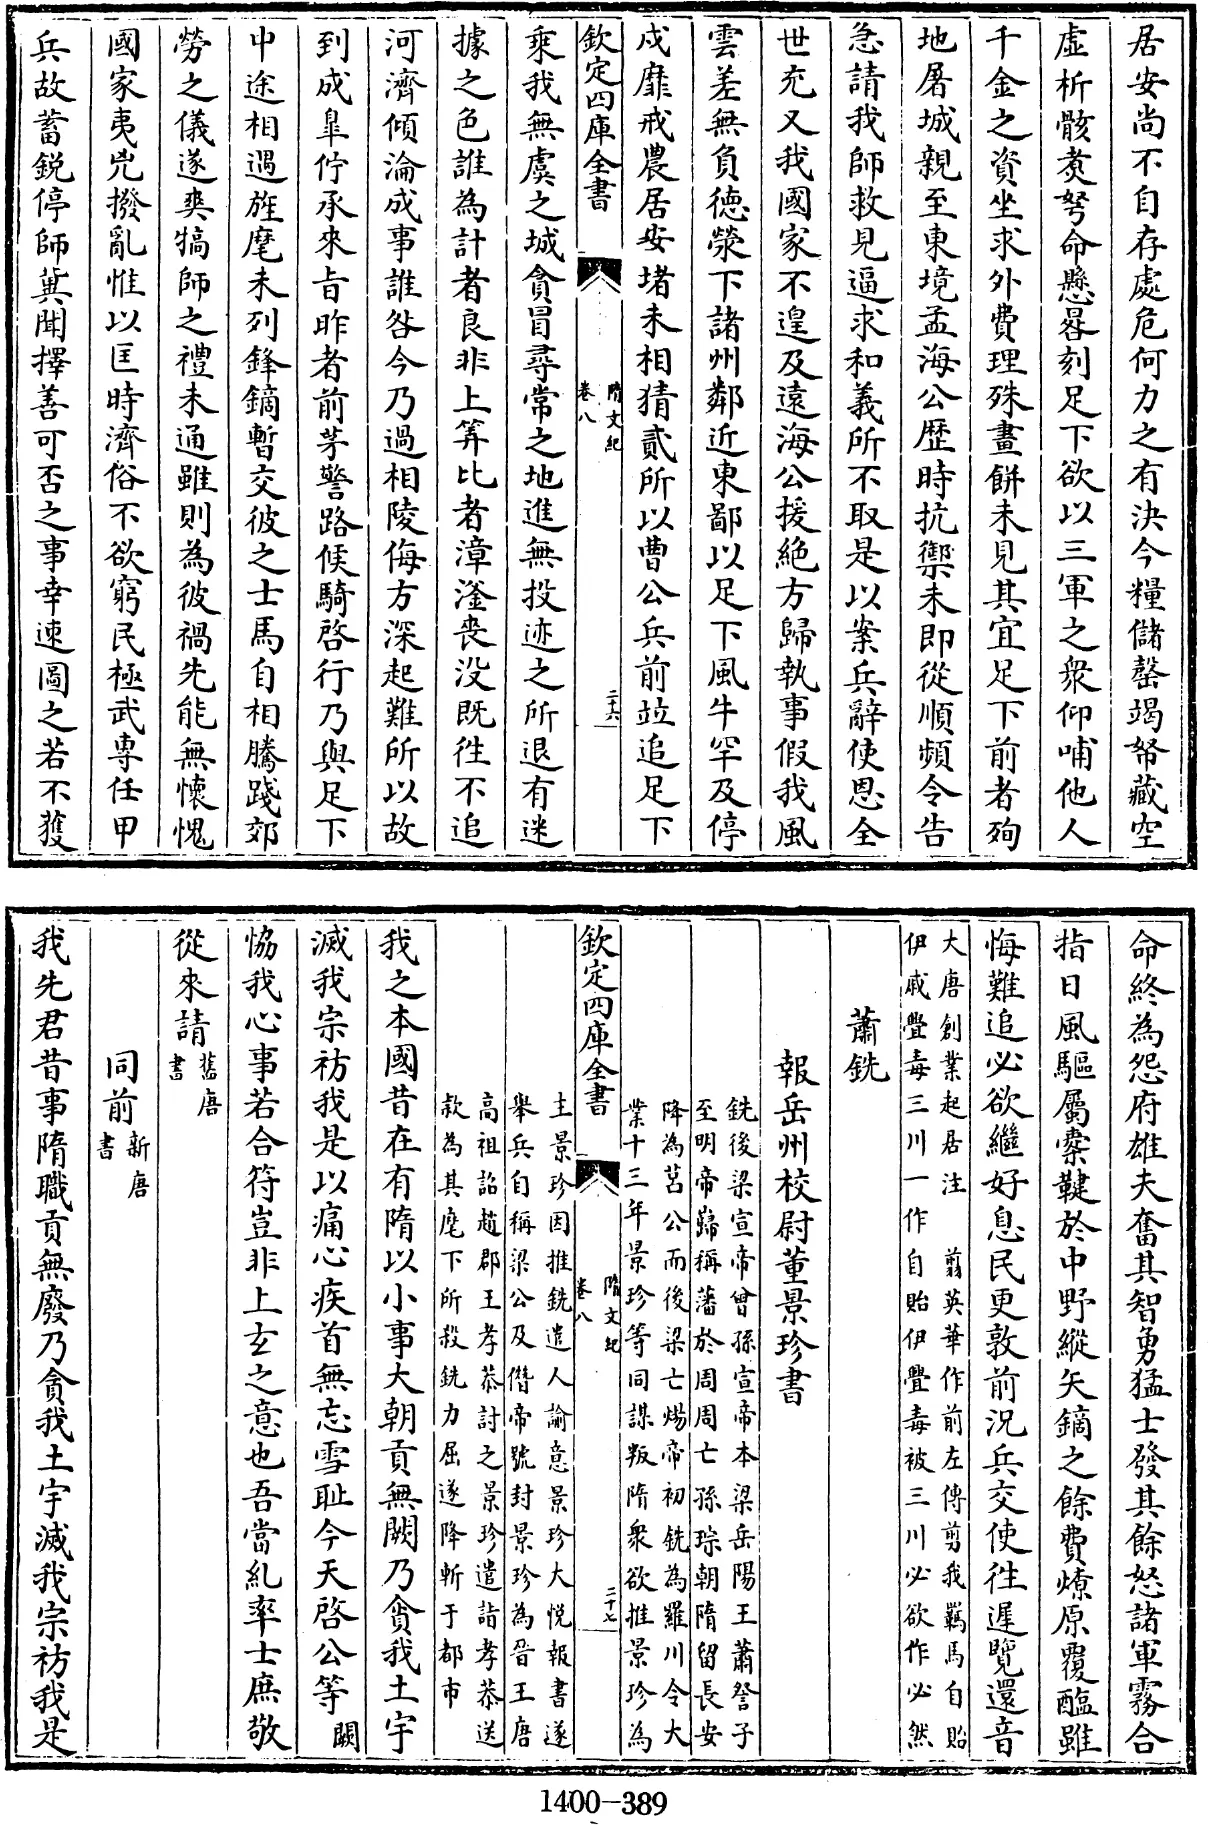 居安尚不自存處危何力之有決今糧儲罄竭帑藏空
虛析骸㷊弩命懸晷刻足下欲以三軍之衆仰哺他人
千金之資坐求外費理殊畫餅未見其宜足下前者殉
地屠城親至東境孟海公歷時抗禦未即從順頻令告
急請我師救見逼求和義所不取是以案兵辭使恩全
世充又我國家不遑及遠海公援絶方歸執事假我風
雲差無負德滎下諸州鄰近東鄙以足下風牛罕及停
戍靡戒農居安堵未相猜貳所以曹公兵前竝追足下
欽定四庫全書
隋文紀
卷八
二十六
乘我無虞之城貪冒尋常之地進無投迹之所退有迷
據之色誰為計者良非上筭比者漳滏喪没既徃不追
河濟傾淪成事誰咎今乃過相陵侮方深起難所以故
到成臯佇承來旨昨者前茅警路候騎啓行乃與足下
中途相遇旌麾未列鋒鏑暫交彼之士馬自相騰踐郊
勞之儀遂爽犒師之禮未通雖則為彼禍先能無懷愧
國家夷兇撥亂惟以匡時濟俗不欲窮民極武專任甲
兵故蓄鋭停師兾聞擇善可否之事幸速圖之若不獲
命終為怨府雄夫奮其智勇猛士發其餘怒諸軍霧合
指日風驅屬櫜鞬於中野縱矢鏑之餘費燎原覆醢雖
悔難追必欲繼好息民更敦前況兵交使徃遲覽還音
大唐創業起居注　翦英華作前左傳剪我羈馬自貽
伊戚舋毒三川一作自貽伊舋毒被三川必欲作必然
蕭銑
報岳州校尉董景珍書
銑後梁宣帝曾孫宣帝本梁岳陽王蕭詧子
至明帝巋稱藩於周周亡孫琮朝隋留長安
降為莒公而後梁亡煬帝初銑為羅川令大
業十三年景珍等同謀叛隋衆欲推景珍為
欽定四庫全書
隋文紀
卷八
二十七
主景珍因推銑遣人諭意景珍大悦報書遂
舉兵自稱梁公及僭帝號封景珍為晉王唐
高祖詔趙郡王孝恭討之景珍遣詣孝恭送
款為其麾下所殺銑力屈遂降斬于都市
我之本國昔在有隋以小事大朝貢無闕乃貪我土宇
滅我宗祊我是以痛心疾首無忘雪恥今天啓公等闕
恊我心事若合符豈非上玄之意也吾當糺率士庶敬
從來請舊唐書
同前新唐書
我先君昔事隋職貢無廢乃貪我土宇滅我宗祊我是
1400-389